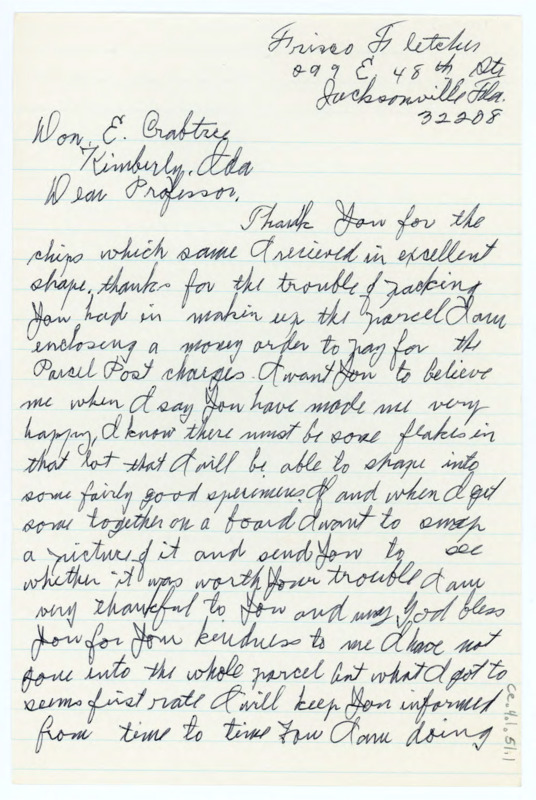 Frisco Fletcher
899 E 48th Str
Jacksonville Fla.
32208
Don. E. Crabtree
Kimberly, Ida
Dear Professor,
Thank You for the
chips which same I recieved in excellent
shape, thanks for the trouble & packing
You had in makin up the parcel I am
enclosing a money order to pay for the
Parcel Post charges. I want You to believe
me when I say You have made me very
happy, I know there must be some flakes in
that lot that I will be able to shape into
some fairly good specimens, If and when I get
some together on a board I want to snap
a picture of it and send You to see
whether it was worth Your trouble I am
very thankful to You and may God bless
You for Your kindness to me I have not
gone into the whole parcel but what I got to
seems first rate I will keep You informed
from time to time how I am doing
ce.4.1.511.1